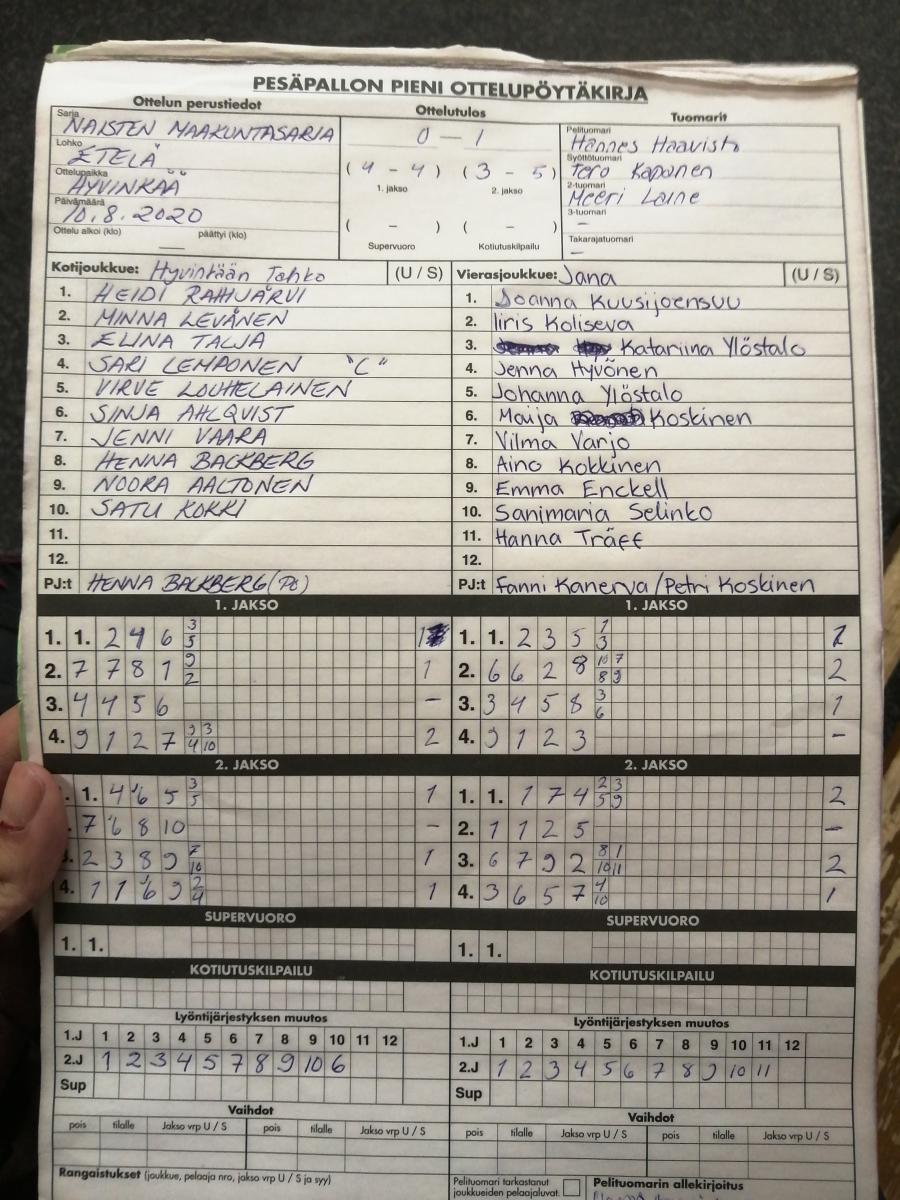 PESÄPALLON PIENI OTTELUPÖYTÄKIRJA
Ottelun perustiedot
Sarja
NAISTEN MAAKUNTASARJA
Lohko
ETELÄ
Ottelupaikka
HYVINKÄÄ
Päivämäärä
10.8.2020
Ottelu alkoi (klo) — päättyi (klo)
Ottelutulos
0 — 1
( 4 - 4 ) ( 3 - 5 )
1. jakso 2. jakso
( - ) ( - )
Supervuoro Kotiutuskilpailu
Tuomarit
Pelituomari
Hannes Haavisto
Syöttötuomari
Tero Kaponen
2-tuomari
Meeri Laine
3-tuomari
—
Takarajatuomari
—
Kotijoukkue: Hyvinkään Tahko (U / S)
1. HEIDI RAHIJÄRVI
2. MINNA LEVÄNEN
3. ELINA TALJA
4. SARI LEMPONEN "C"
5. VIRVE LOUHELAINEN
6. SINJA AHLQVIST
7. JENNI VAARA
8. HENNA BACKBERG
9. NOORA AALTONEN
10. SATU KOKKI
11.
12.
PJ:t HENNA BACKBERG (PG)
Vierasjoukkue: Jana (U / S)
1. Joanna Kuusijoensuu
2. Iiris Koliseva
3. Katariina Ylöstalo
4. Jenna Hyvönen
5. Johanna Ylöstalo
6. Maija Koskinen
7. Vilma Varjo
8. Aino Kokkinen
9. Emma Enckell
10. Sanimaria Selinko
11. Hanna Träff
12.
PJ:t Fanni Kanerva/Petri Koskinen
1. JAKSO
1. 1. 2 4 6 3 5 1
2. 7 7 8 1 9 2 1
3. 4 4 5 6 –
4. 9 1 2 7 9 3 4 10 2
1. JAKSO
1. 1. 2 3 5 1 3 1
2. 6 6 2 8 10 7 8 9 2
3. 3 4 5 8 3 6 1
4. 9 1 2 3 –
2. JAKSO
1. 1. 4 6 5 3 5 1
7 6 8 10 –
3. 2 3 8 9 7 10 1
4. 1 1 6 9 2 4 1
2. JAKSO
1. 1. 1 7 4 2 3 5 9 2
2. 1 1 2 5 –
3. 6 7 9 2 8 1 10 11 2
4. 3 6 5 7 4 10 1
SUPERVUORO
1. 1.
SUPERVUORO
1. 1.
KOTIUTUSKILPAILU
KOTIUTUSKILPAILU
Lyöntijärjestyksen muutos
1.J 1 2 3 4 5 6 7 8 9 10 11 12
2.J 1 2 3 4 5 7 8 9 10 6
Sup
Lyöntijärjestyksen muutos
1.J 1 2 3 4 5 6 7 8 9 10 11 12
2.J 1 2 3 4 5 6 7 8 9 10 11
Sup
Vaihdot
pois tilalle Jakso vrp U / S pois tilalle Jakso vrp U / S
Vaihdot
pois tilalle Jakso vrp U / S pois tilalle Jakso vrp U / S
Rangaistukset (joukkue, pelaaja nro, jakso vrp U / S ja syy)
Pelituomari tarkastanut
joukkueiden pelaajaluvat.
Pelituomarin allekirjoitus